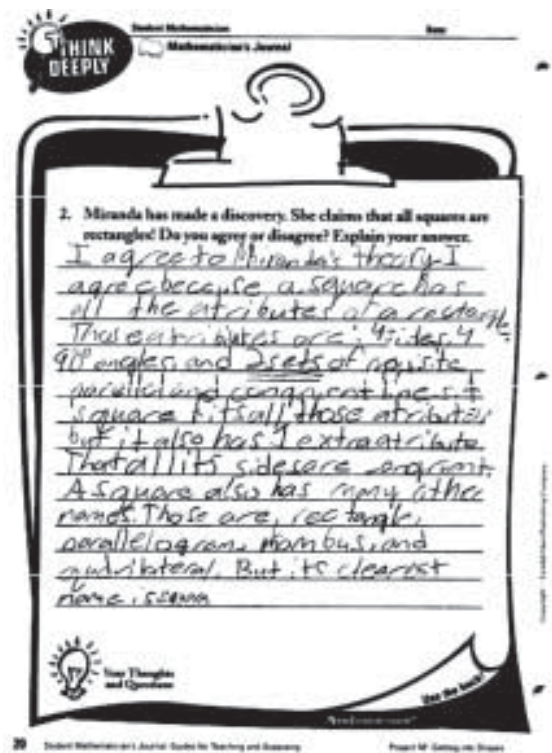 THINK
DEEPLY
Student Mathematician:
Date:
Mathematician's Journal
2. Miranda has made a discovery. She claims that all squares are
rectangles! Do you agree or disagree? Explain your answer.
I agree to Miranda's theory. I
agree because a square has
all the atributes of a rectangle.
Those atributes are: 4 sides, 4
90° angles, and 2 sets of
parallel and congruent lines. A
square fits all those atributes
but it also has 1 extra atribute.
That all its sides are congruent.
A square also has many other
names. Those are, rectangle,
parallelogram, rhombus, and
But its clearest
name is
Your Thoughts
and Questions
Use the back!
20 Student Mathematician's Journal: Guides for Teaching and Assessing
Project M³: Getting into Shapes